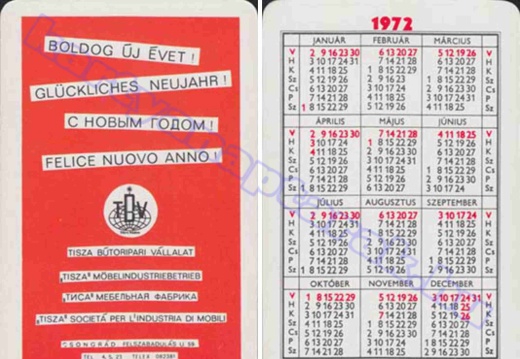 BOLDOG ÚJ ÉVET !
GLÜCKLICHES NEUJAHR !
С НОВЫМ ГОДОМ !
FELICE NUOVO ANNO !
TBV
TISZA BÚTORIPARI VÁLLALAT
„TISZA" MÖBELINDUSTRIEBETRIEB
„ТИСА" МЕБЕЛЬНАЯ ФАБРИКА
„TISZA" SOCIETÁ PER L'INDUSTRIA DI MOBILI
CSONGRÁD, FELSZABADULÁS U.
1972
JANUÁR FEBRUÁR MÁRCIUS
V 2 9 16 23 30 6 13 20 27 5 12 19 26 V
H 3 10 17 24 31 7 14 21 28 6 13 20 27 H
K 4 11 18 25 1 8 15 22 29 7 14 21 28 K
Sz 5 12 19 26 2 9 16 23 1 8 15 22 29 Sz
Cs 6 13 20 27 3 10 17 24 2 9 16 23 30 Cs
P 7 14 21 28 4 11 18 25 3 10 17 24 31 P
Sz 1 8 15 22 29 5 12 19 26 4 11 18 25 Sz
ÁPRILIS MÁJUS JÚNIUS
V 2 9 16 23 30 7 14 21 28 4 11 18 25 V
H 3 10 17 24 1 8 15 22 29 5 12 19 26 H
K 4 11 18 25 2 9 16 23 30 6 13 20 27 K
Sz 5 12 19 26 3 10 17 24 31 7 14 21 28 Sz
Cs 6 13 20 27 4 11 18 25 1 8 15 22 29 Cs
P 7 14 21 28 5 12 19 26 2 9 16 23 30 P
Sz 1 8 15 22 29 6 13 20 27 3 10 17 24 Sz
JÚLIUS AUGUSZTUS SZEPTEMBER
V 2 9 16 23 30 6 13 20 27 3 10 17 24 V
H 3 10 17 24 31 7 14 21 28 4 11 18 25 H
K 4 11 18 25 1 8 15 22 29 5 12 19 26 K
Sz 5 12 19 26 2 9 16 23 30 6 13 20 27 Sz
Cs 6 13 20 27 3 10 17 24 31 7 14 21 28 Cs
P 7 14 21 28 4 11 18 25 1 8 15 22 29 P
Sz 1 8 15 22 29 5 12 19 26 2 9 16 23 30 Sz
OKTÓBER NOVEMBER DECEMBER
V 1 8 15 22 29 5 12 19 26 3 10 17 24 31 V
H 2 9 16 23 30 6 13 20 27 4 11 18 25 H
K 3 10 17 24 31 7 14 21 28 5 12 19 26 K
Sz 4 11 18 25 1 8 15 22 29 6 13 20 27 Sz
Cs 5 12 19 26 2 9 16 23 30 7 14 21 28 Cs
P 6 13 20 27 3 10 17 24 1 8 15 22 29 P
Sz 7 14 21 28 4 11 18 25 2 9 16 23 30 Sz